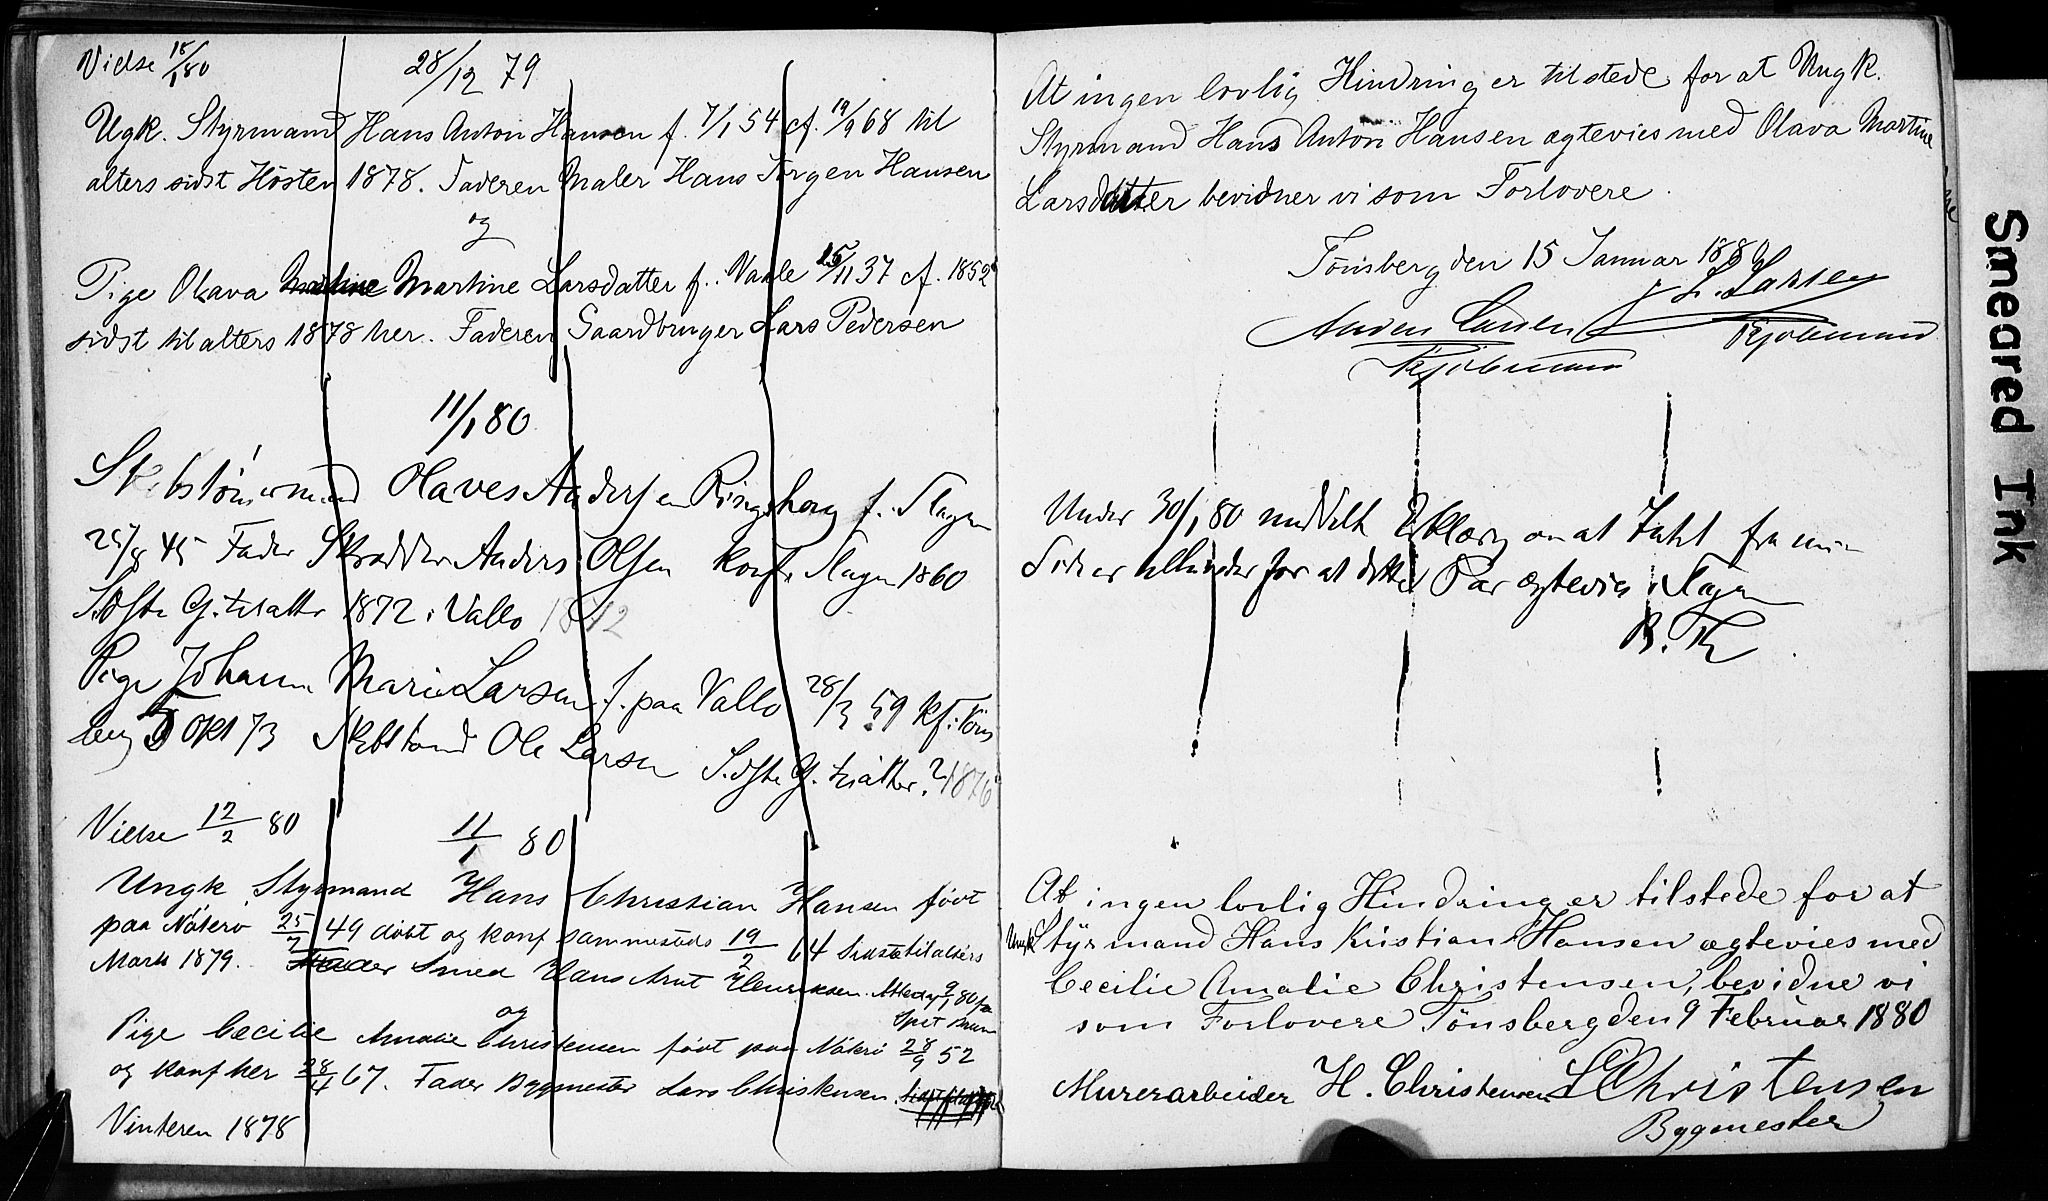 Vielse 18/1 80
28/12 79
Ugk. Styrmand Hans Anton Hansen f. 7/1 54 cf. 19/9 68 til
alters sidst Høsten 1878. Faderen Maler Hans Jørgen Hansen
og
Pige Olava Martine Martine Larsdatter f. Vaale 15/11 37 cf. 1852
sidst til alters 1878 her. Faderen Gaardbruger Lars Pedersen
11/1 80
Olaves Andersen Ringshoug f. Slagen
25/8 45 Fader Skrædder Anders Olsen konf. Slagen 1860
Sidste G. til alter 1872 i Vallo 1872
Pige Johanne Marie Larsen f. paa Vallo 28/3 59 kf. i Töns
berg 5 Okt 73 Ole Larsen Sidste G. til alter ? 1876
Vielse 12/2 80
11/1 80
Ungk. Styrmand Hans Christian Hansen født
paa Nøterø 25/7 49 døbt og konf sammesteds 19/2 64 Sidste til alters
Marts 1879. Fader Smed Hans Arnt Henriksen. Attest 9/1 80 fra
og
Pige Cecilie Amalie Christensen født paa Nøterø 28/9 52
og konf her 28/4 67. Fader Bygmester Lars Christensen.
Vinteren 1878
At ingen lovlig Hindring er tilstede for at Ungk.
Styrmand Hans Anton Hansen ægtevies med Olava Martine
Larsdatter bevidner vi som Forlovere.
Tønsberg den 15 Januar 1880
L. Larsen
Anders Larsen Kjøbmand
Kjøbmand
Under 30/1 80 meddelt Erklæring om at Intet fra min
Side er til hinder for at dette Par ægtevies i Slagen
B. Th
At ingen lovlig Hindring er tilstede for at
Ungk Styrmand Hans Kristian Hansen ægtevies med
Cecilie Amalie Christensen, bevidne vi
som Forlovere Tönsberg den 9 Februar 1880
Murerarbeider H. Christensen L Christensen
Bygmester
Smeared Ink